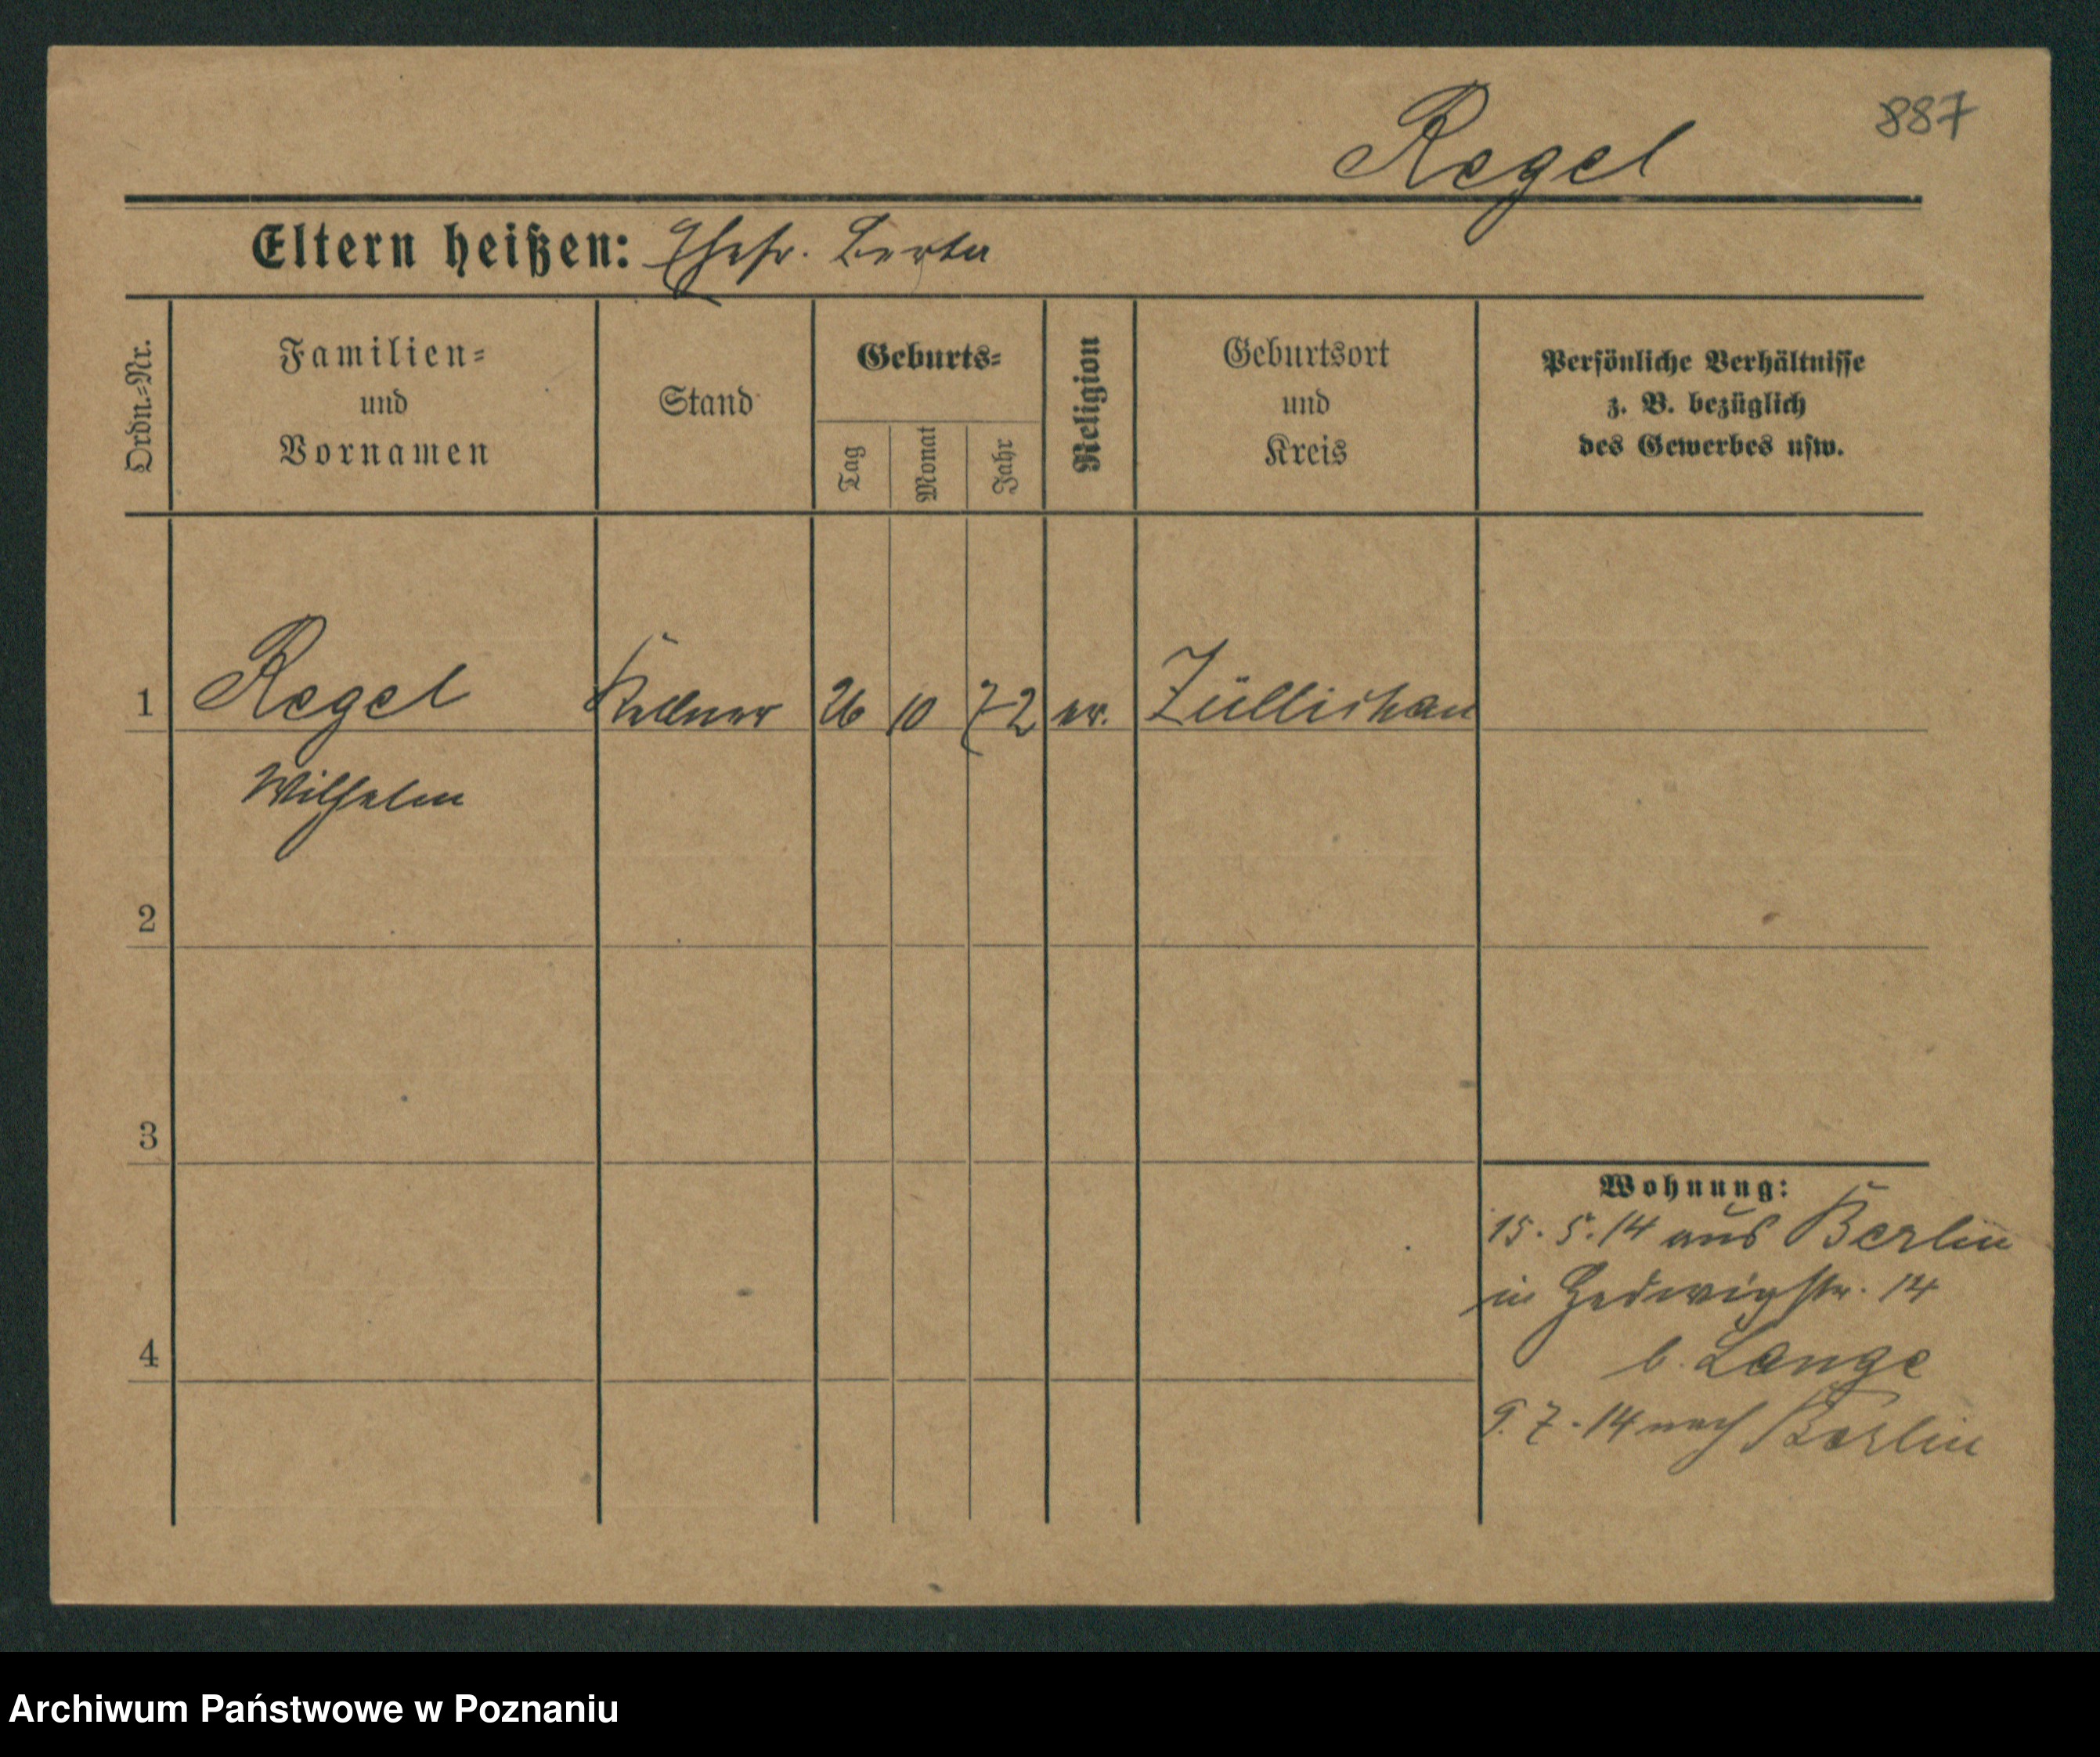 887
Regel
Eltern heißen: Ehefr. Berta
Ordn.-Nr.
Familien-
und
Vornamen
Stand
Geburts-
Tag
Monat
Jahr
Religion
Geburtsort
und
Kreis
Persönliche Verhältnisse
z. B. bezüglich
des Gewerbes usw.
1 Regel Kellner 26 10 72 ev. Züllichau
Wilhelm
2
3
4
Wohnung:
15.5.14 aus Berlin
in Hedwigstr. 14
b. Lange
9.7.14 nach Berlin
Archiwum Państwowe w Poznaniu